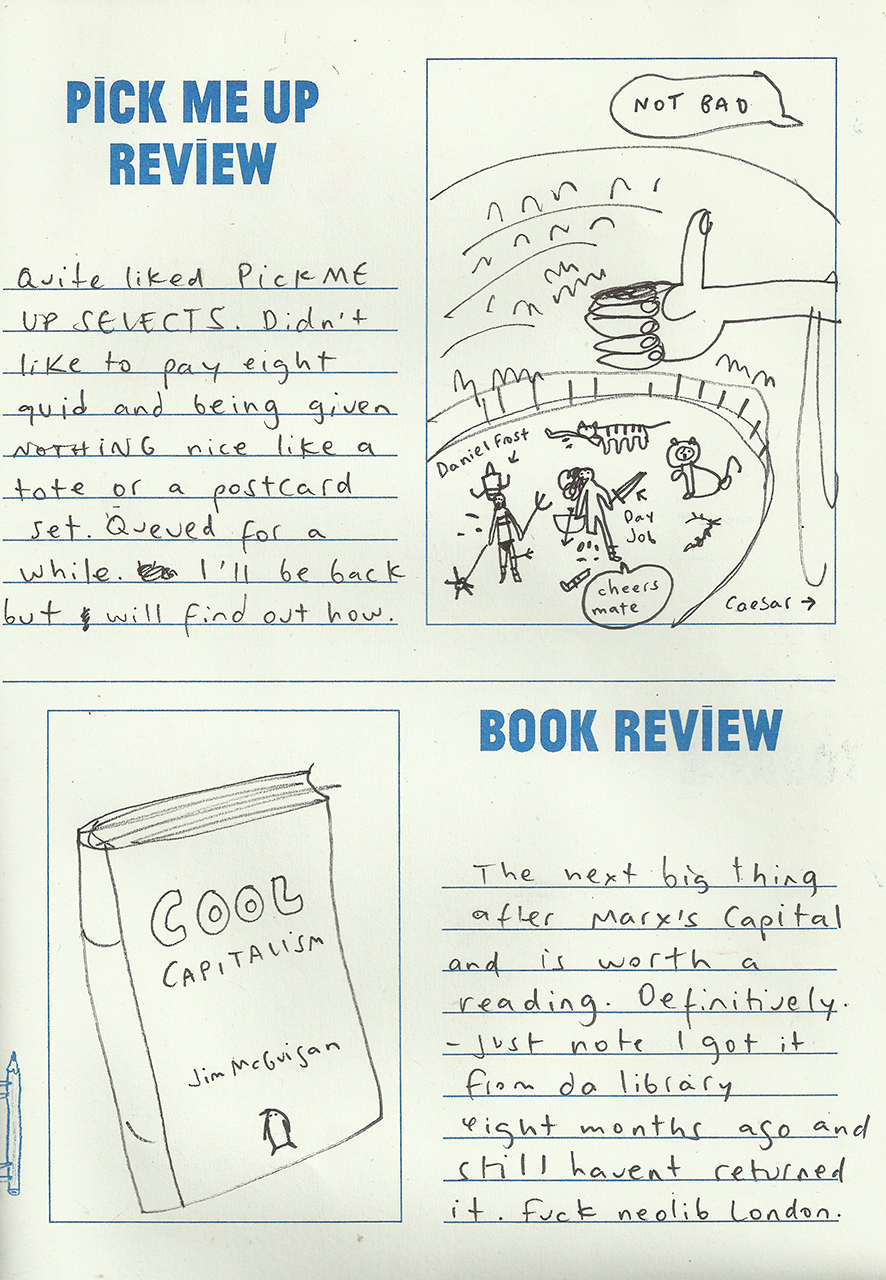 PICK ME UP
REVIEW
Quite liked Pick ME
UP SELECTS. Didn't
like to pay eight
quid and being given
NOTHING nice like a
tote or a postcard
set. Queued for a
while. I'll be back
but will find out how.
NOT BAD
Daniel Frost
Day
Job
cheers
mate
Caesar →
COOL
CAPITALISM
Jim McGuigan
BOOK REVIEW
The next big thing
after Marx's Capital
and is worth a
reading. Definitively.
- Just note I got it
from da library
eight months ago and
still havent returned
it. Fuck neolib London.